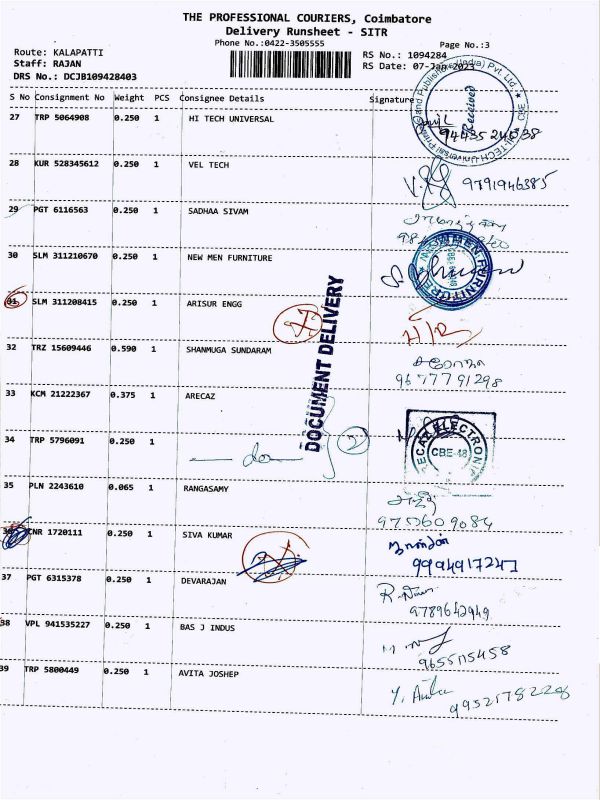 THE PROFESSIONAL COURIERS, Coimbatore
Delivery Runsheet - SITR
Phone No.:0422-3505555
Page No.:3
Route: KALAPATTI
RS No.: 1094284
Staff: RAJAN
RS Date: 07-Jan-2023
DRS No.: DCJB109428403
S No Consignment No Weight PCS Consignee Details Signature
27 TRP 5064908 0.250 1 HI TECH UNIVERSAL
Received
28 KUR 528345612 0.250 1 VEL TECH 9791946385
29 PGT 6116563 0.250 1 SADHAA SIVAM
30 SLM 311210670 0.250 1 NEW MEN FURNITURE
31 SLM 311208415 0.250 1 ARISUR ENGG
DOCUMENT DELIVERY
32 TRZ 15609446 0.590 1 SHANMUGA SUNDARAM
9677791298
33 KCM 21222367 0.375 1 ARECAZ
CBE-48
34 TRP 5796091 0.250 1
do
2
35 PLN 2243610 0.065 1 RANGASAMY
9751609084
CNR 1720111 0.250 1 SIVA KUMAR
9994917247
37 PGT 6315378 0.250 1 DEVARAJAN
9789642949
38 VPL 941535227 0.250 1 BAS J INDUS
9655115458
39 TRP 5800449 0.250 1 AVITA JOSHEP
9952178228